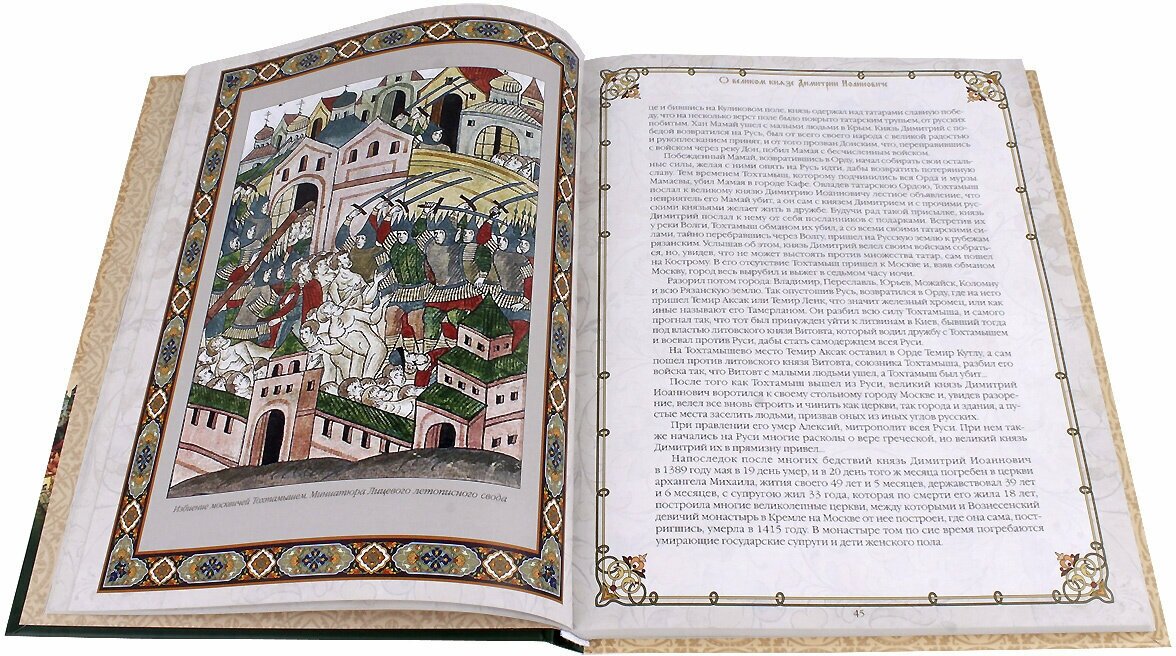 Избиение москвичей Тохтамышем. Миниатюра Лицевого летописного свода
О великом князе Димитрии Иоанновиче
це и бившись на Куликовом поле, князь одержал над татарами славную побе-
ду, что на несколько верст поле было покрыто татарским трупьем, от русских
побитым. Хан Мамай ушел с малыми людьми в Крым. Князь Димитрий с по-
бедой возвратился на Русь, был от всего своего народа с великой радостью
и рукоплесканием принят, и от того прозван Донским, что, переправившись
с войском через реку Дон, побил Мамая с бесчисленным войском.
Побежденный Мамай, возвратившись в Орду, начал собирать свои осталь-
ные силы, желая с ними опять на Русь идти, дабы возвратить потерянную
славу. Тем временем Тохтамыш, которому подчинились вся Орда и мурзы
Мамаевы, убил Мамая в городе Кафе. Овладев татарскою Ордою, Тохтамыш
послал к великому князю Димитрию Иоанновичу лестное объявление, что
неприятель его Мамай убит, а он сам с князем Димитрием и с прочими рус-
скими князьями желает жить в дружбе. Будучи рад такой присылке, князь
Димитрий послал к нему от себя посланников с подарками. Встретив их
у реки Волги, Тохтамыш обманом их убил, а со всеми своими татарскими си-
лами, тайно перебравшись через Волгу, пришел на Русскую землю к рубежам
рязанским. Услышав об этом, князь Димитрий велел своим войскам собрать-
ся, но, увидев, что не может выстоять против множества татар, сам пошел
на Кострому. В его отсутствие Тохтамыш пришел к Москве и, взяв обманом
Москву, город весь вырубил и выжег в седьмом часу ночи.
Разорил потом города: Владимир, Переславль, Юрьев, Можайск, Коломну
и всю Рязанскую землю. Так опустошив Русь, возвратился в Орду, где на него
пришел Темир Аксак или Темир Ленк, что значит железный хромец, или как
иные называют его Тамерланом. Он разбил всю силу Тохтамыша, и самого
прогнал так, что тот был принужден уйти к литвинам в Киев, бывший тогда
под властью литовского князя Витовта, который водил дружбу с Тохтамышем
и воевал против Руси, дабы стать самодержцем всея Руси.
На Тохтамышево место Темир Аксак оставил в Орде Темир Кутлу, а сам
пошел против литовского князя Витовта, союзника Тохтамыша, разбил его
войска так, что Витовт с малыми людьми ушел, а Тохтамыш был убит...
После того как Тохтамыш вышел из Руси, великий князь Димитрий
Иоаннович воротился к своему стольному городу Москве и, увидев разоре-
ние, велел все вновь строить и чинить как церкви, так города и здания, а пу-
стые места заселить людьми, призвав оных из иных углов русских.
При правлении его умер Алексий, митрополит всея Руси. При нем так-
же начались на Руси многие расколы о вере греческой, но великий князь
Димитрий их в прямизну привел...
Напоследок после многих бедствий князь Димитрий Иоаннович
в 1389 году мая в 19 день умер, и в 20 день того ж месяца погребен в церкви
архангела Михаила, жития своего 49 лет и 5 месяцев, державствовал 39 лет
и 6 месяцев, с супругою жил 33 года, которая по смерти его жила 18 лет,
построила многие великолепные церкви, между которыми и Вознесенский
девичий монастырь в Кремле на Москве от нее построен, где она сама, пост-
ригшись, умерла в 1415 году. В монастыре том по сие время погребаются
умирающие государские супруги и дети женского пола.
45